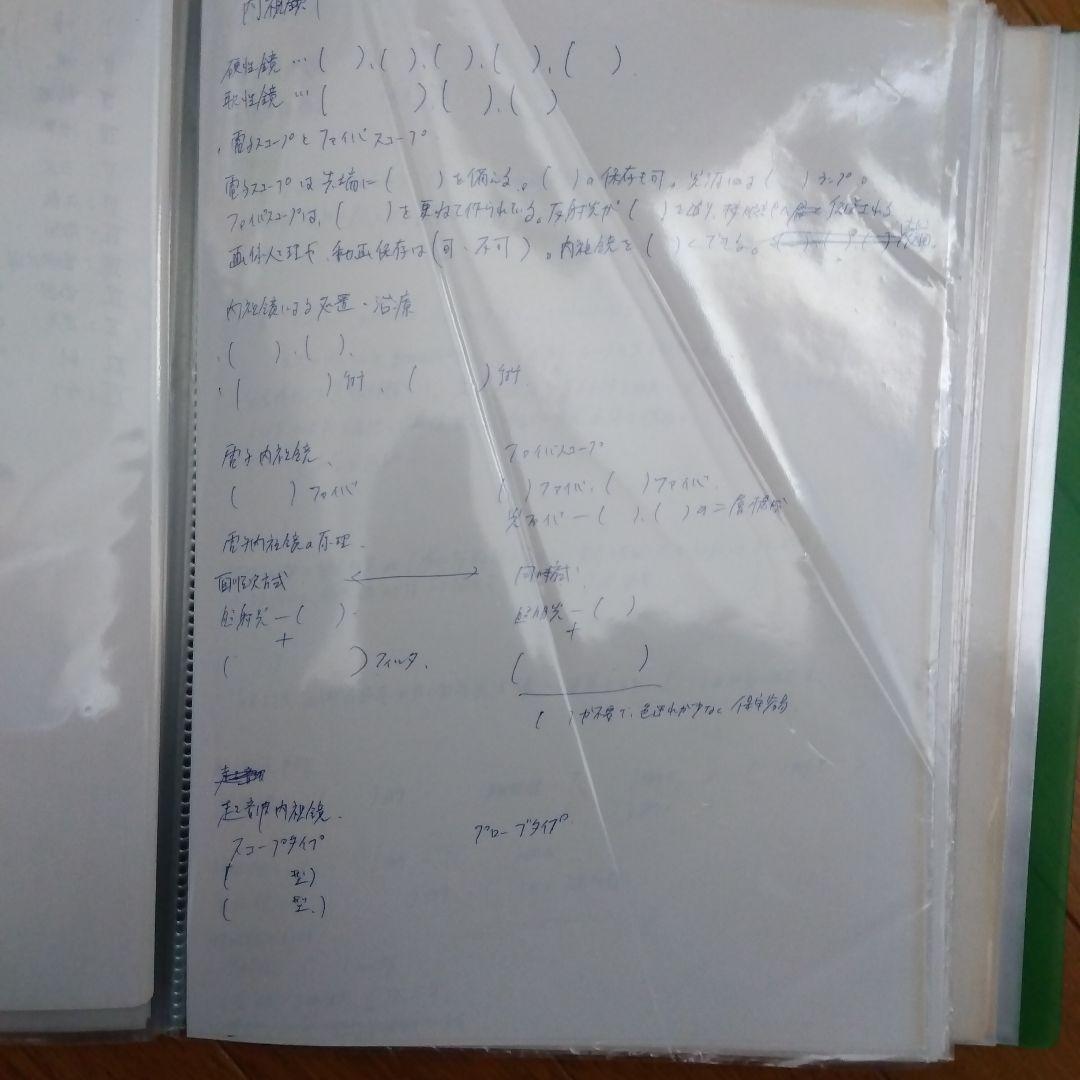 内視鏡
硬性鏡…(　)、(　)、(　)、(　)、(　)
軟性鏡…(　)、(　)、(　)
・電子スコープとファイバスコープ
電子スコープは先端に(　)を備える。(　)の保存も可。光源は(　)ランプ。
ファイバスコープは、(　)を束ねて作られている。反射光が(　)を通り、接眼部へ伝送される
画像処理や、動画保存は(可・不可)。内視鏡を(　)くできる。
内視鏡による処置・治療
・(　)、(　)、
・(　)術、(　)術
電子内視鏡、
ファイバスコープ
(　)ファイバ
(　)ファイバ、(　)ファイバ、
光ファイバー(　)、(　)の二層構成
電子内視鏡の原理、
面順次方式
同時方式
照射光ー(　)
照射光ー(　)
+
+
(　)フィルタ、
(　)
(　)が不要で、色ずれが少なく 保守容易
超音波内視鏡、
スコープタイプ
プローブタイプ
(　型)
(　型、)